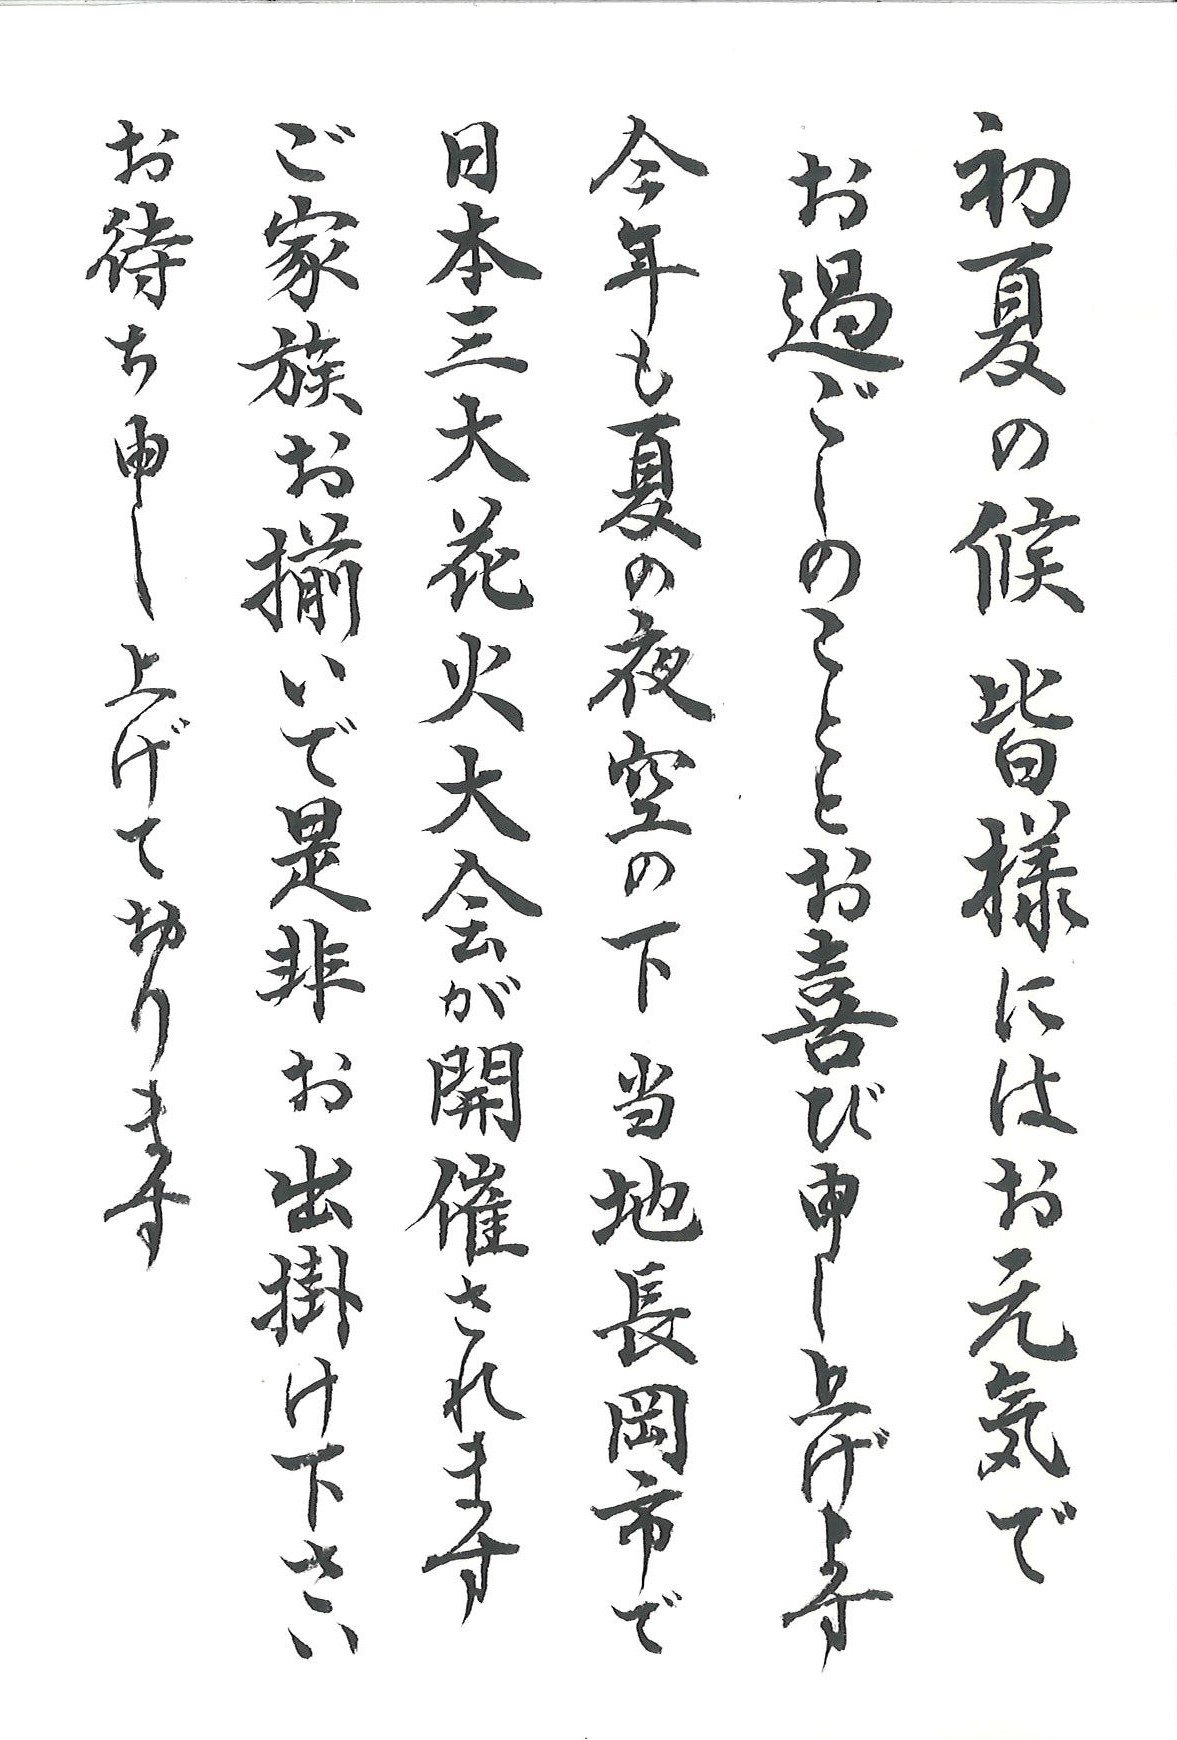 初夏の候 皆様にはお元気で
お過ごしのこととお喜び申し上げます
今年も夏の夜空の下 当地長岡市で
日本三大花火大会が開催されます
ご家族お揃いで是非お出掛け下さい
お待ち申し上げて おります